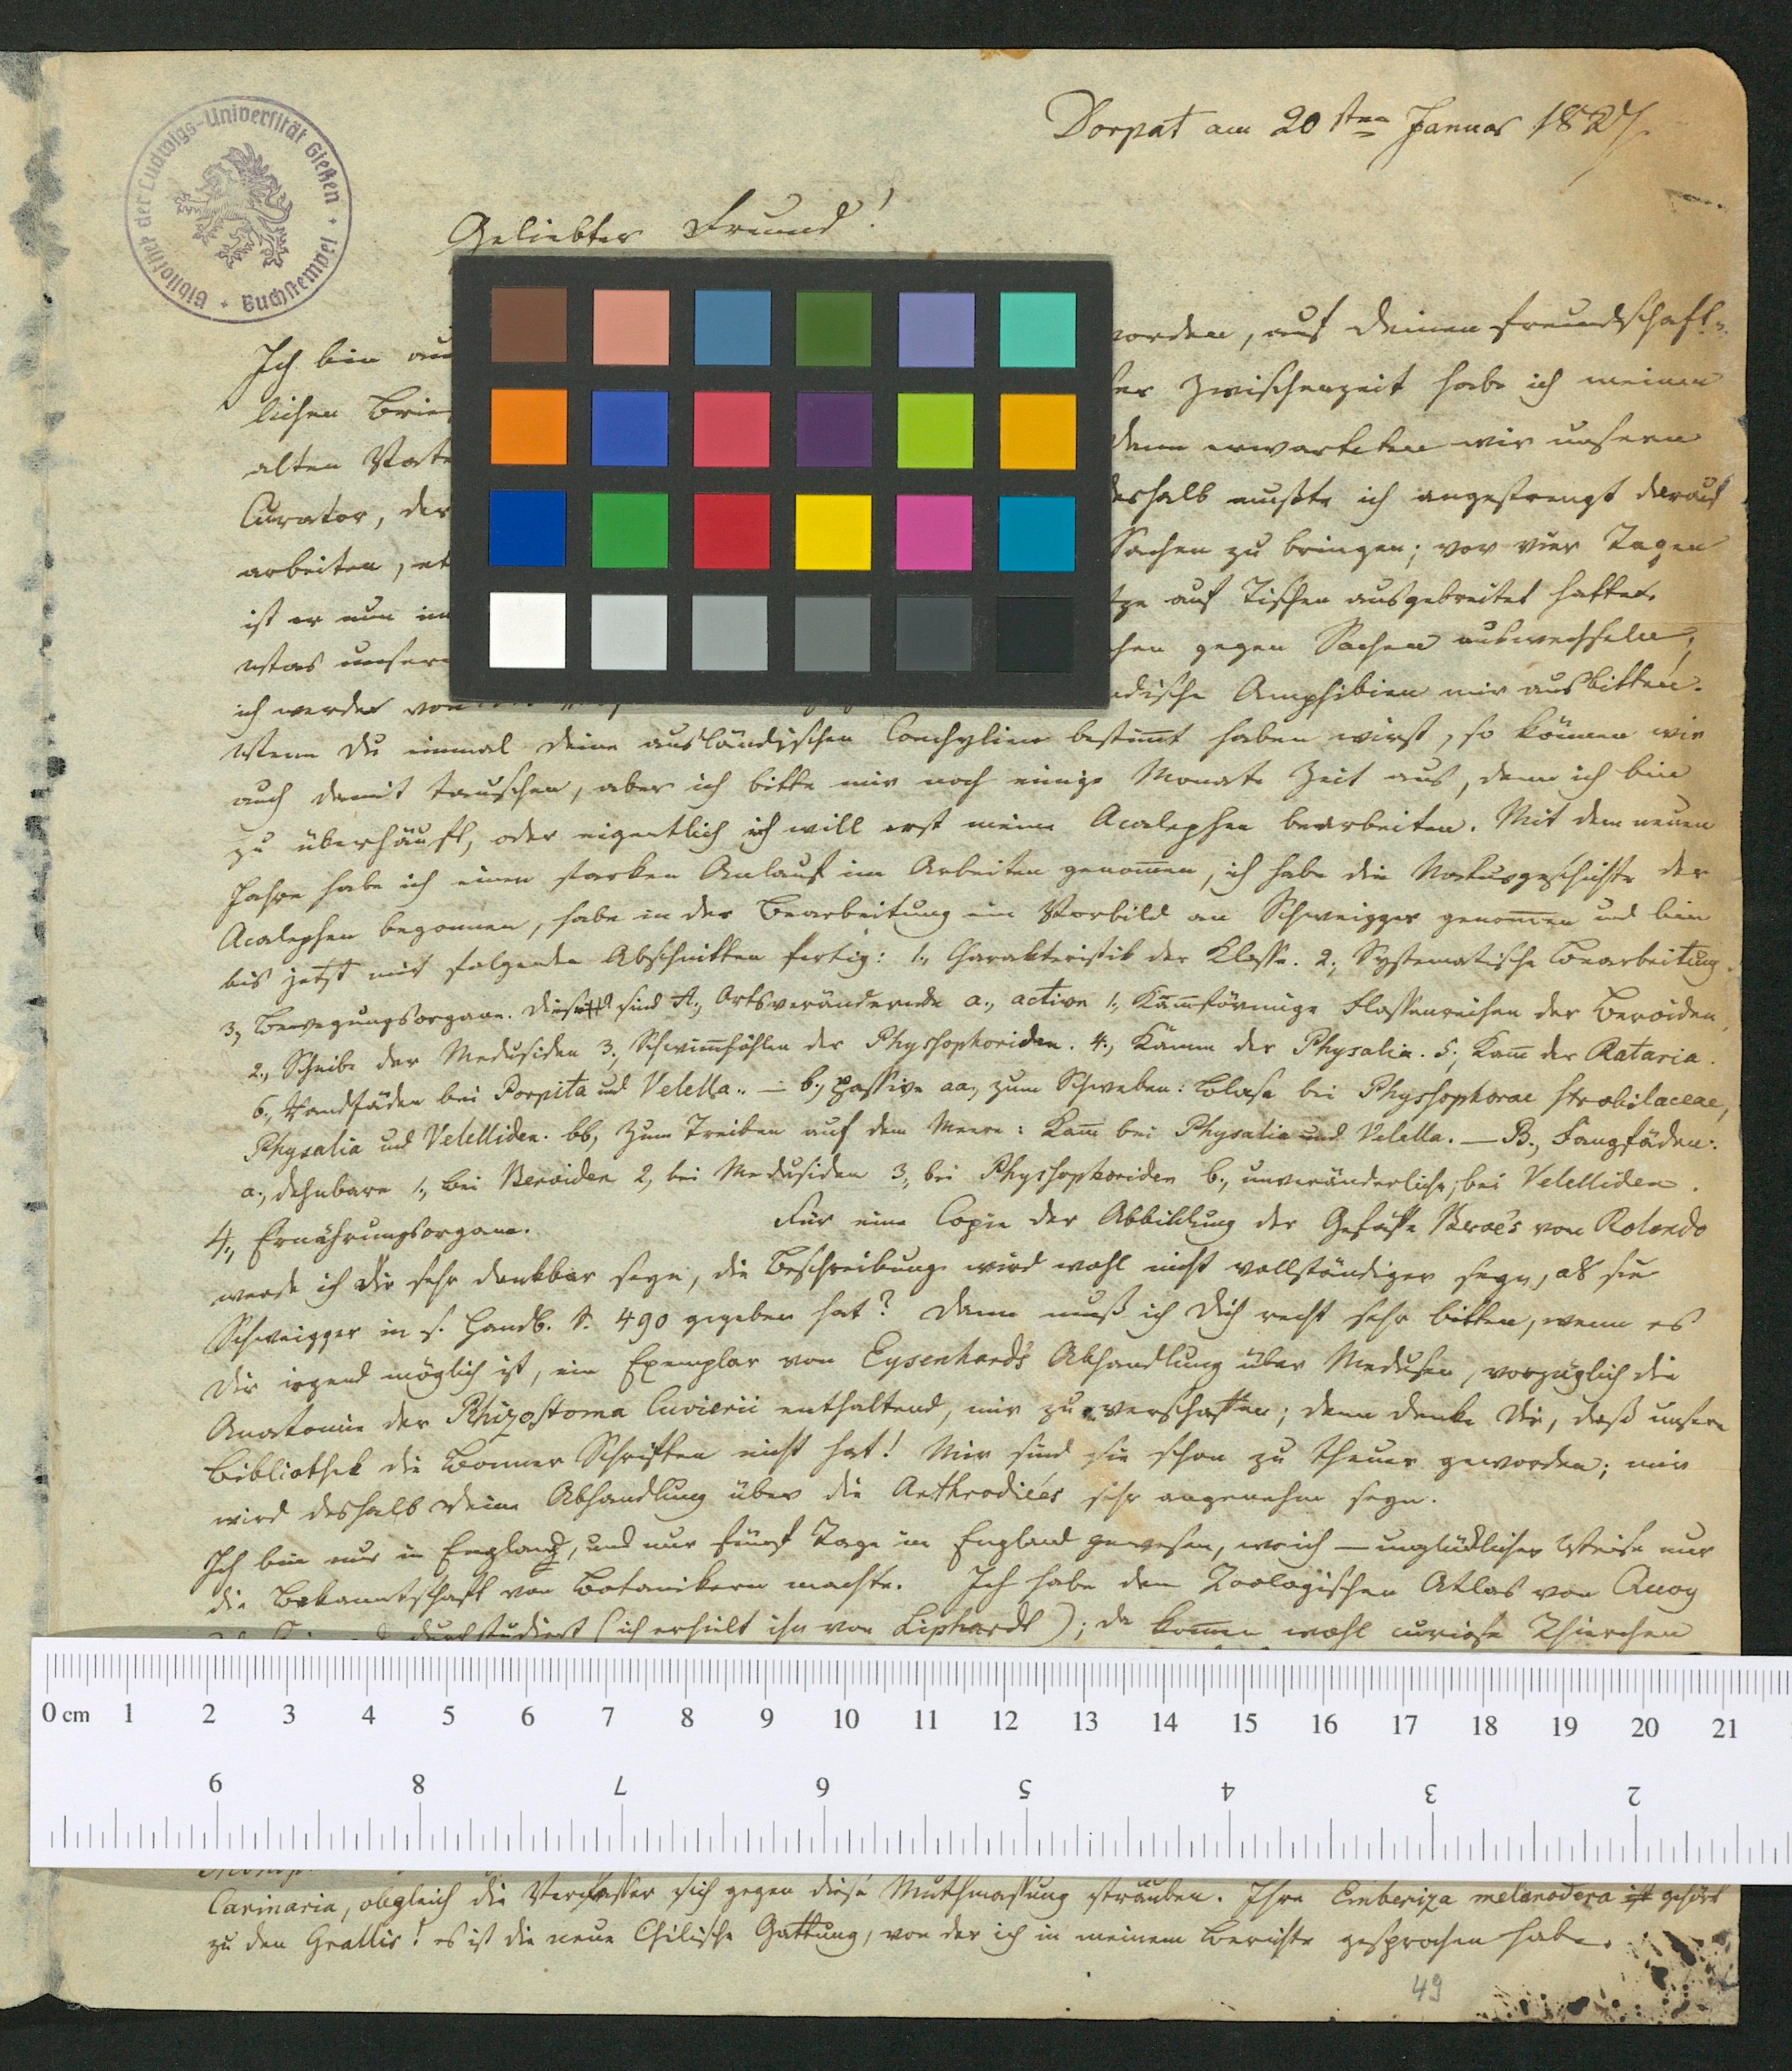 Bibliothek der Ludwigs-Universität Gießen + Buchstempel +
Dorpat am 20sten Januar 1827.
Geliebter Freund!
Ich bin worden, auf Deinen freundschaft-
lichen Brie Zwischenzeit habe ich meinen
alten Vate dann erwarteten wir unsern
Curator, der deshalb mußte ich angestrengt darauf
arbeiten, et Sachen zu bringen; vor vier Tagen
ist er nun auf Tischen ausgebreitet hatte.
etwas unsere gegen Sachen auswechseln,
ich werde von Amphibien mir ausbitten.
Wenn Du einmal Deine ausländischen Conchylien bestimt haben wirst, so können wir
auch damit tauschen, aber ich bitte mir noch einige Monate Zeit aus, denn ich bin
zu überhäuft, oder eigentlich ich will erst meine Acalephen bearbeiten. Mit dem neuen
Jahre habe ich einen starken Anlauf im Arbeiten genomen, ich habe die Naturgeschichte der
Acalephen begonnen, habe in der Bearbeitung ein Vorbild an Schweigger genomen und bin
bis jetzt mit folgenden Abschnitten fertig: 1., Charakteristik der Klasse. 2., Systematische Bearbeitung.
3, Bewegungsorgane. Diese sind A., Ortsverändernde a., active 1., Kamförmige Flossenreihen der Beroiden,
2., Scheibe der Medusiden 3., Schwimhöhlen der Physsophoriden. 4., Kamm der Physalia. 5., Kam der Rataria.
6., Randfäden bei Porpita und Velella. – b., passive aa., zum Schweben: Blase bei Physsophorae strobilaceae,
Physalia und Velelliden. bb, zum Treiben auf dem Meere: Kam bei Physalia und Velella. – B., Fangfäden:
a., dehnbare 1., bei Beroiden 2, bei Medusiden 3, bei Physsophoriden b., unveränderliche, bei Velelliden.
4., Ernährungsorgane. Für eine Copie der Abbildung der Gefäße Beroe's von Rolando
werde ich Dir sehr dankbar seyn, die Beschreibung wird wohl nicht vollständiger seyn, als sie
Schweigger in s. Handb. S. 490 gegeben hat? Dann muß ich Dich recht sehr bitten, wenn es
Dir irgend möglich ist, ein Exemplar von Eysenhardt's Abhandlung über Medusen, vorzüglich die
Anatomie der Rhizostoma Cuvierii enthaltend, mir zu verschaffen; denn denke Dir, daß unsere
Bibliothek die Bonner Schriften nicht hat! Mir sind sie schon zu theuer geworden; mir
wird deshalb Deine Abhandlung über die Arthrodiées sehr angenehm seyn.
Ich bin nur in England, und nur fünf Tage in England gewesen, wo ich – unglücklicher Weise nur
die Bekanntschaft von Botanikern machte. Ich habe den Zoologischen Atlas von Quoy
durchstudiert (ich erhielt ihn von Liphardt); da komen wohl curiose Thierchen
0 cm 1 2 3 4 5 6 7 8 9 10 11 12 13 14 15 16 17 18 19 20 21
9 8 7 6 5 4 3 2
Carinaria, obgleich die Verfasser sich gegen diese Muthmassung sträuben. Ihre Emberiza melanodera ist gehört
zu den Grallis! es ist die neue Chilische Gattung, von der ich in meinem Berichte gesprochen habe.
49